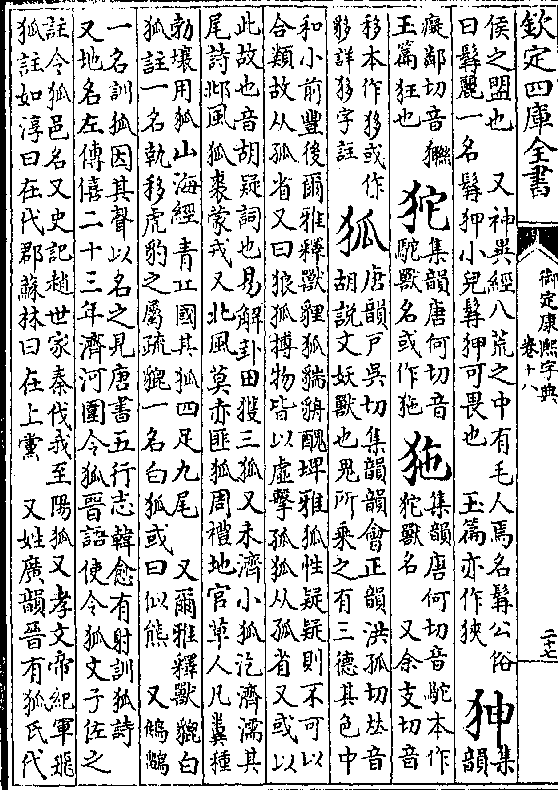 欽定四庫全書
御定康熙字典
卷十八
二十七
侯之盟也　又神異經八荒之中有毛人焉名髯公俗
曰髯麗一名髯狎小兒髯狎可畏也　玉篇亦作狹
集韻
癡鄰切音獜
玉篇狂也
𤝛
集韻唐何切音
駝獸名或作狏
狏
集韻唐何切音駝本作
𤝛獸名　又余支切音
移本作移或作
詳字註
狐
唐韻戸吳切集韻韻會正韻洪孤切𠀤音
胡說文妖獸也鬼所乘之有三德其色中
和小前豐後爾雅釋獸貍狐貒貈醜埤雅狐性疑疑則不可以
合類故从孤省又曰狼狐搏物皆以虛擊孤狐从孤省又或以
此故也音胡疑詞也易解卦田獲三狐又未濟小狐汔濟濡其
尾詩邶風狐裘蒙戎又北風莫赤匪狐周禮地官草人凡糞種
勃壤用狐山海經青丘國其狐四足九尾　又爾雅釋獸貔白
狐註一名執移虎豹之屬疏貔一名白狐或曰似熊　又鵂鶹
一名訓狐因其聲以名之見唐書五行志韓愈有射訓狐詩
又地名左傳僖二十三年濟河圍令狐晉語使令狐文子佐之
註令狐邑名又史記趙世家秦伐我至陽狐又孝文帝紀軍飛
狐註如淳曰在代郡蘇林曰在上黨　又姓廣韻晉有狐氏代